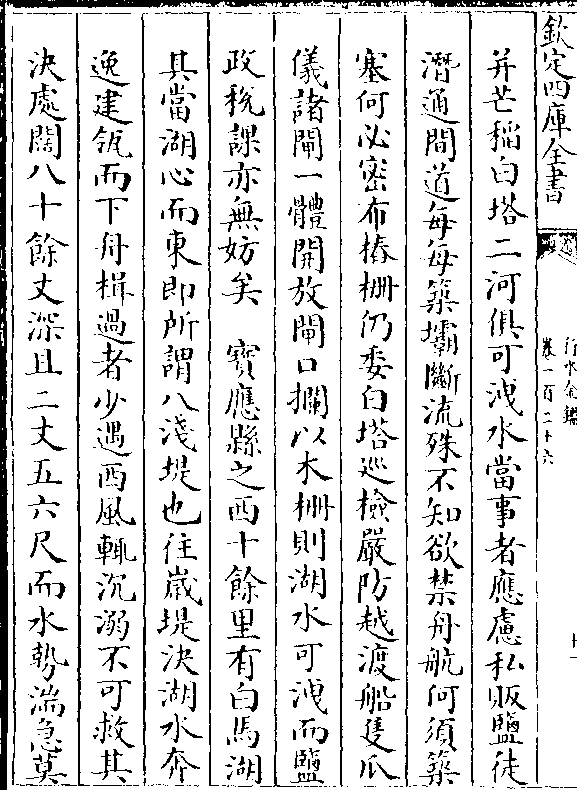 欽定四庫全書
行水金鑑
卷一百二十六
十一
并芒稻白塔二河俱可洩水當事者應慮私販鹽徒
潛通間道每每築壩斷流殊不知欲禁舟航何須築
塞何必密布樁柵仍委白塔巡檢嚴防越渡船隻瓜
儀諸閘一體開放閘口攔以木柵則湖水可洩而鹽
政稅課亦無妨矣　寶應縣之西十餘里有白馬湖
其當湖心而東即所謂八淺堤也往嵗堤決湖水奔
逸建瓴而下舟楫過者少遇西風輒沉溺不可救其
決處闊八十餘丈深且二丈五六尺而水勢湍急莫